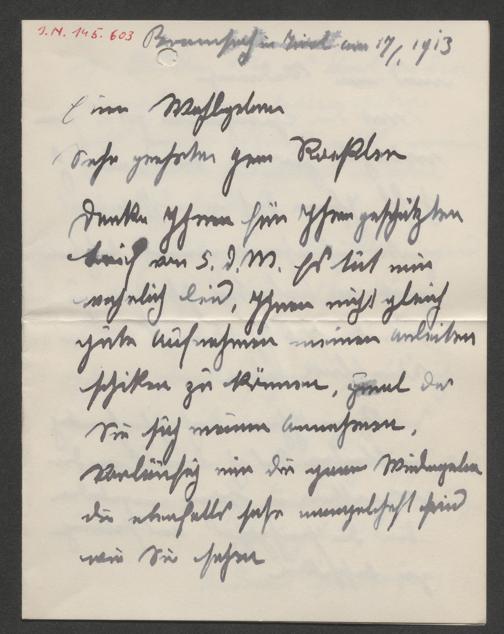 I.N. 145.603
in Tirol am 17/1. 1913
Euer Wohlgeboren
Sehr geehrter Herr Roeßler
Danke Ihnen für Ihren geschätzten
Brief von 5. d. M. Es tut mir
wahrlich leid, Ihnen nicht gleich
gute Aufnahmen meiner Arbeiten
schiken zu können, zumal da
Sie sich meiner annehmen,
Vorläufig nur die paar
die ebenfalls sehr mangelhaft sind
wie Sie sehen